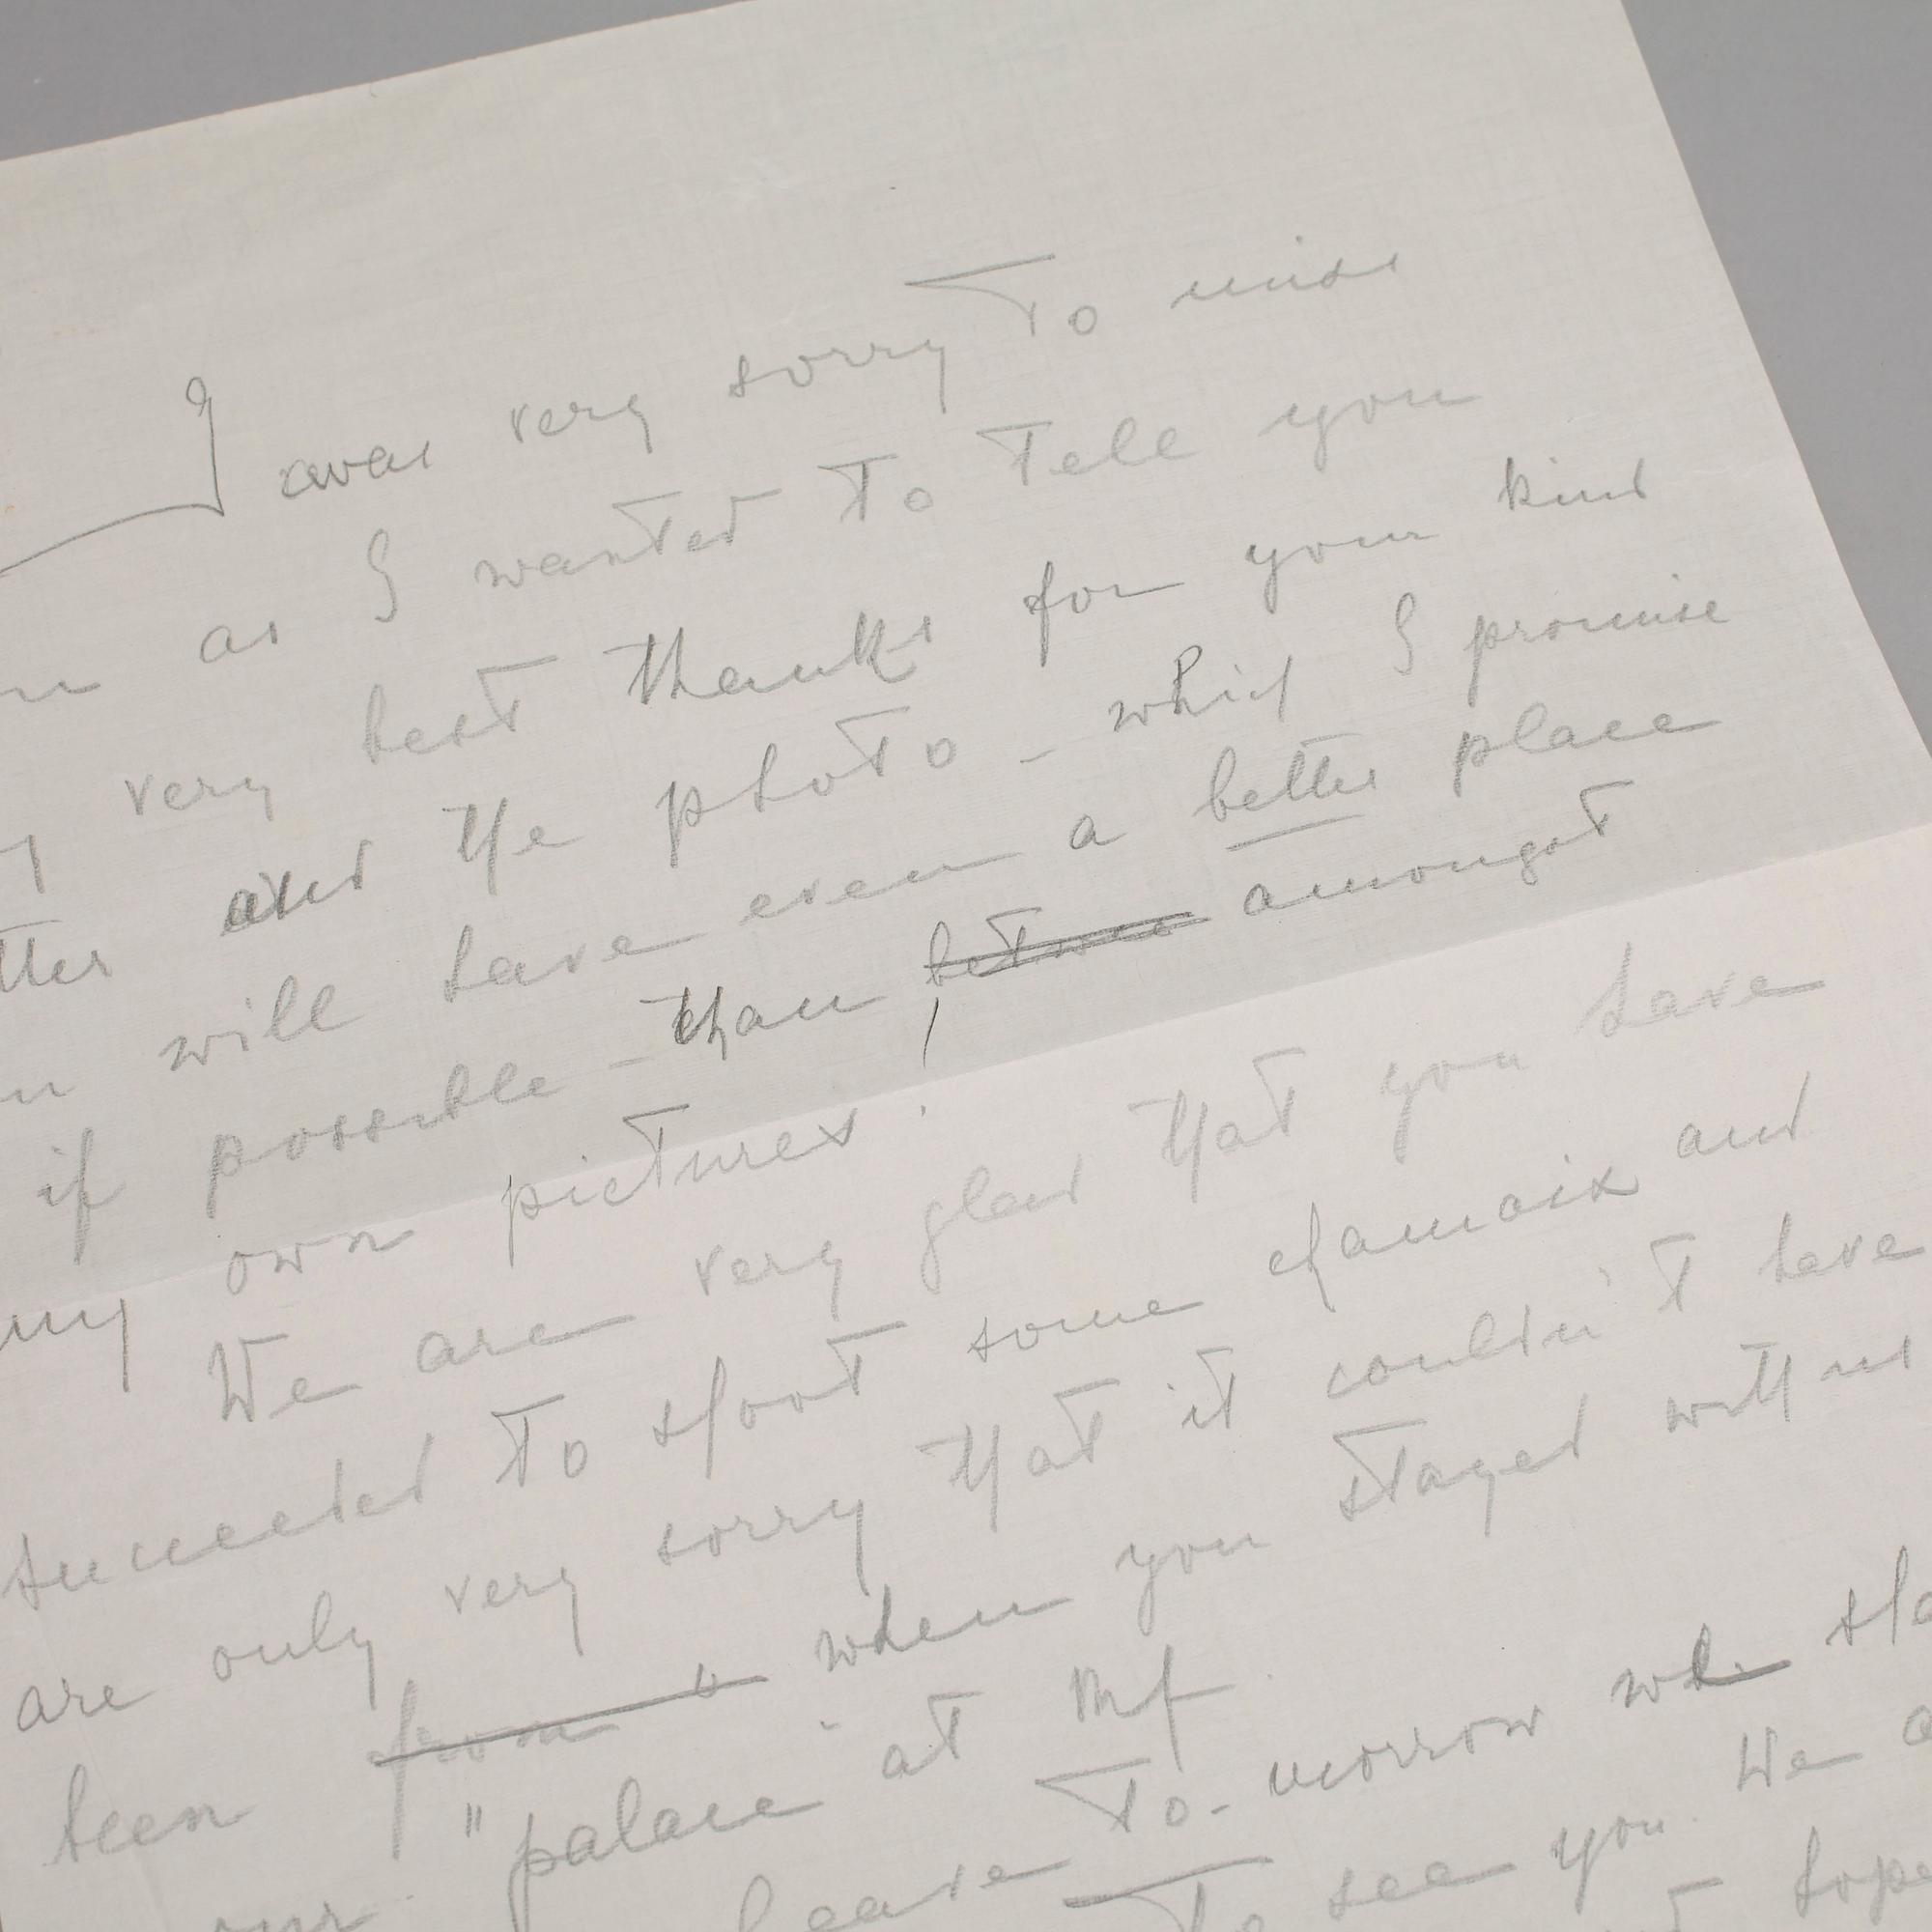 I was very sorry To miss
as I wanted To Tell you
very best thanks for your kind
and the photo - which I promise
will have even a better place
if possible - than betwee amongst
my own pictures!
We are very glad that you have
succeeded To shoot some chamoix and
are only very sorry that it couldn't have
been from when you stayed with us
our "palace" at Mf.
leave To-morrow
To see you. We
hope